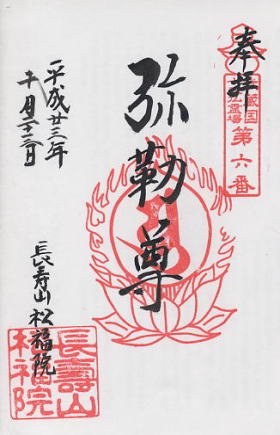 奉拝
第六番
弥勒尊
平成廿三年
十一月二十三日
長寿山松福院
長壽山
松福院